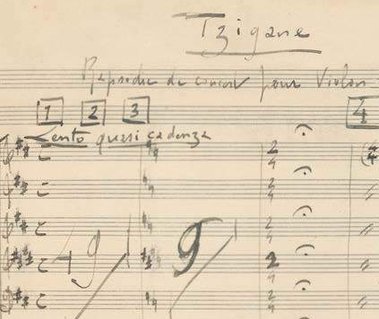 Tzigane
Rapsodie de concert pour Violon
1 2 3 4
Lento quasi cadenza
49 9